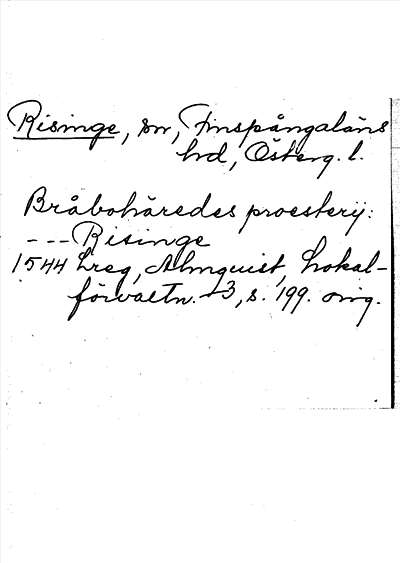 Risinge, sn, Finspångaläns
hd, Österg. l.
Bråbohäredes proesterij:
--- Risinge
1544 Lreg, Almquist, Lokal-
förvaltn. 3, s. 199. orig.